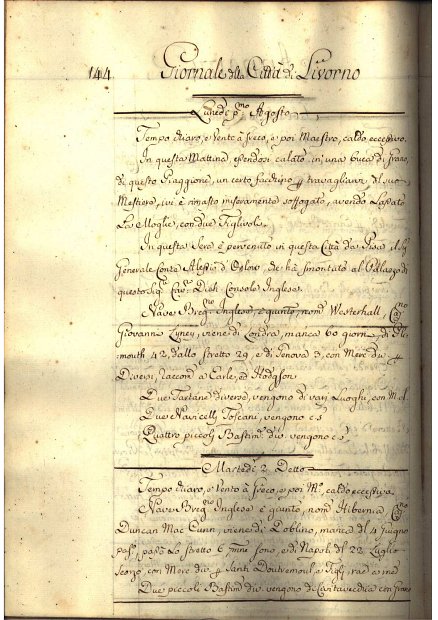 144 Giornale della Città di Livorno
Lunedì p.mo Agosto
Tempo chiaro, e Vento à Greco, e poi Maestro, caldo eccessivo.
In questa Mattina, essendosi calato in una buca di Grano,
di questo Piaggione, un certo facchino p travagliare, del suo
Mestiero, ivi è rimasto miseramente soffogato, avendo Lassato
La Moglie, con due Figlioli.
In questa Sera è pervenuto in questa Città da Pisa il
Generale Conte Alessi. d'Orlow, ed hà smontato al Palazzo di
questo Sig.r Cav.r Dich Console Inglese.
Nave Breg.no Inglese è giunto, nom.o Westerhall, Cap.no
Giovanni viene di Londra, manca 60 giorni, di
mouth 42, dallo stretto 29, e di Genova 3, con Merc. div. p
Diversi, raccond. a Earle, ed Hodgson
Due Tartane diverse, vengono di varj Luoghi, con
Due Navicelli Toscani, vengono c.s.
Quattro piccoli Bastim. div. vengono c.s.
Martedì 2 Detto
Tempo chiaro, e Vento à Greco, e poi M.o caldo eccessivo.
Nave Breg.no Inglese è giunto, nom.o Hibernia Cap.no
Duncan Mac Cunn, viene di Doblino, manca dal Giugno
pas.o, passò Lo stretto 6 sono, e di Napoli dal 22 Luglio
scorso, con Merc. div. p Santi e Figlj, rac.
Due piccoli Bastim. div. vengono di Cantavecchia con Grano